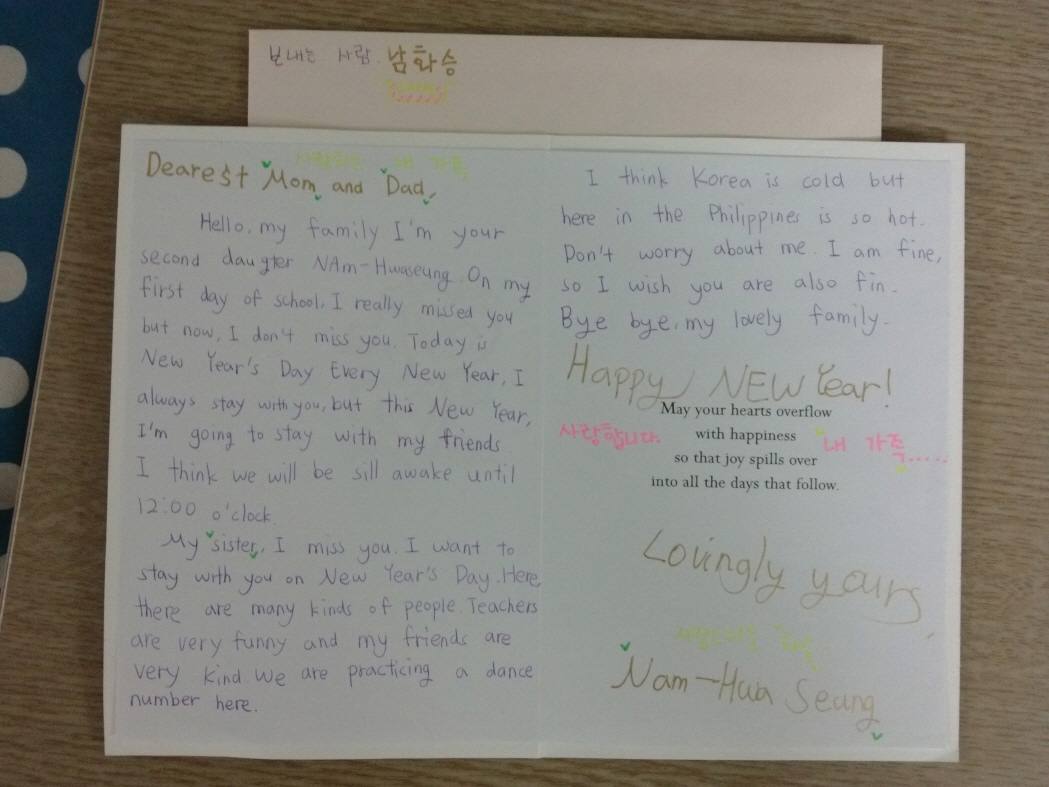 보내는 사람. 남화승
사랑하는 내 가족
Dearest Mom and Dad,
Hello, my family I'm your
second daugter NAm-Hwaseung. On my
first day of school, I really missed you
but now, I don't miss you. Today is
New Year's Day Every New Year, I
always stay with you, but this New Year,
I'm going to stay with my friends.
I think we will be sill awake until
12:00 o'clock.
My sister, I miss you. I want to
stay with you on New Year's Day. Here
there are many kinds of people. Teachers
are very funny and my friends are
very kind. We are practicing a dance
number here.
I think Korea is cold but
here in the Philippines is so hot.
Don't worry about me. I am fine,
so I wish you are also fin.
Bye bye, my lovely family.
Happy NEW Year!
May your hearts overflow
with happiness
so that joy spills over
into all the days that follow.
사랑합니다. 내 가족.....
Lovingly yours,
Nam-Hwa Seung